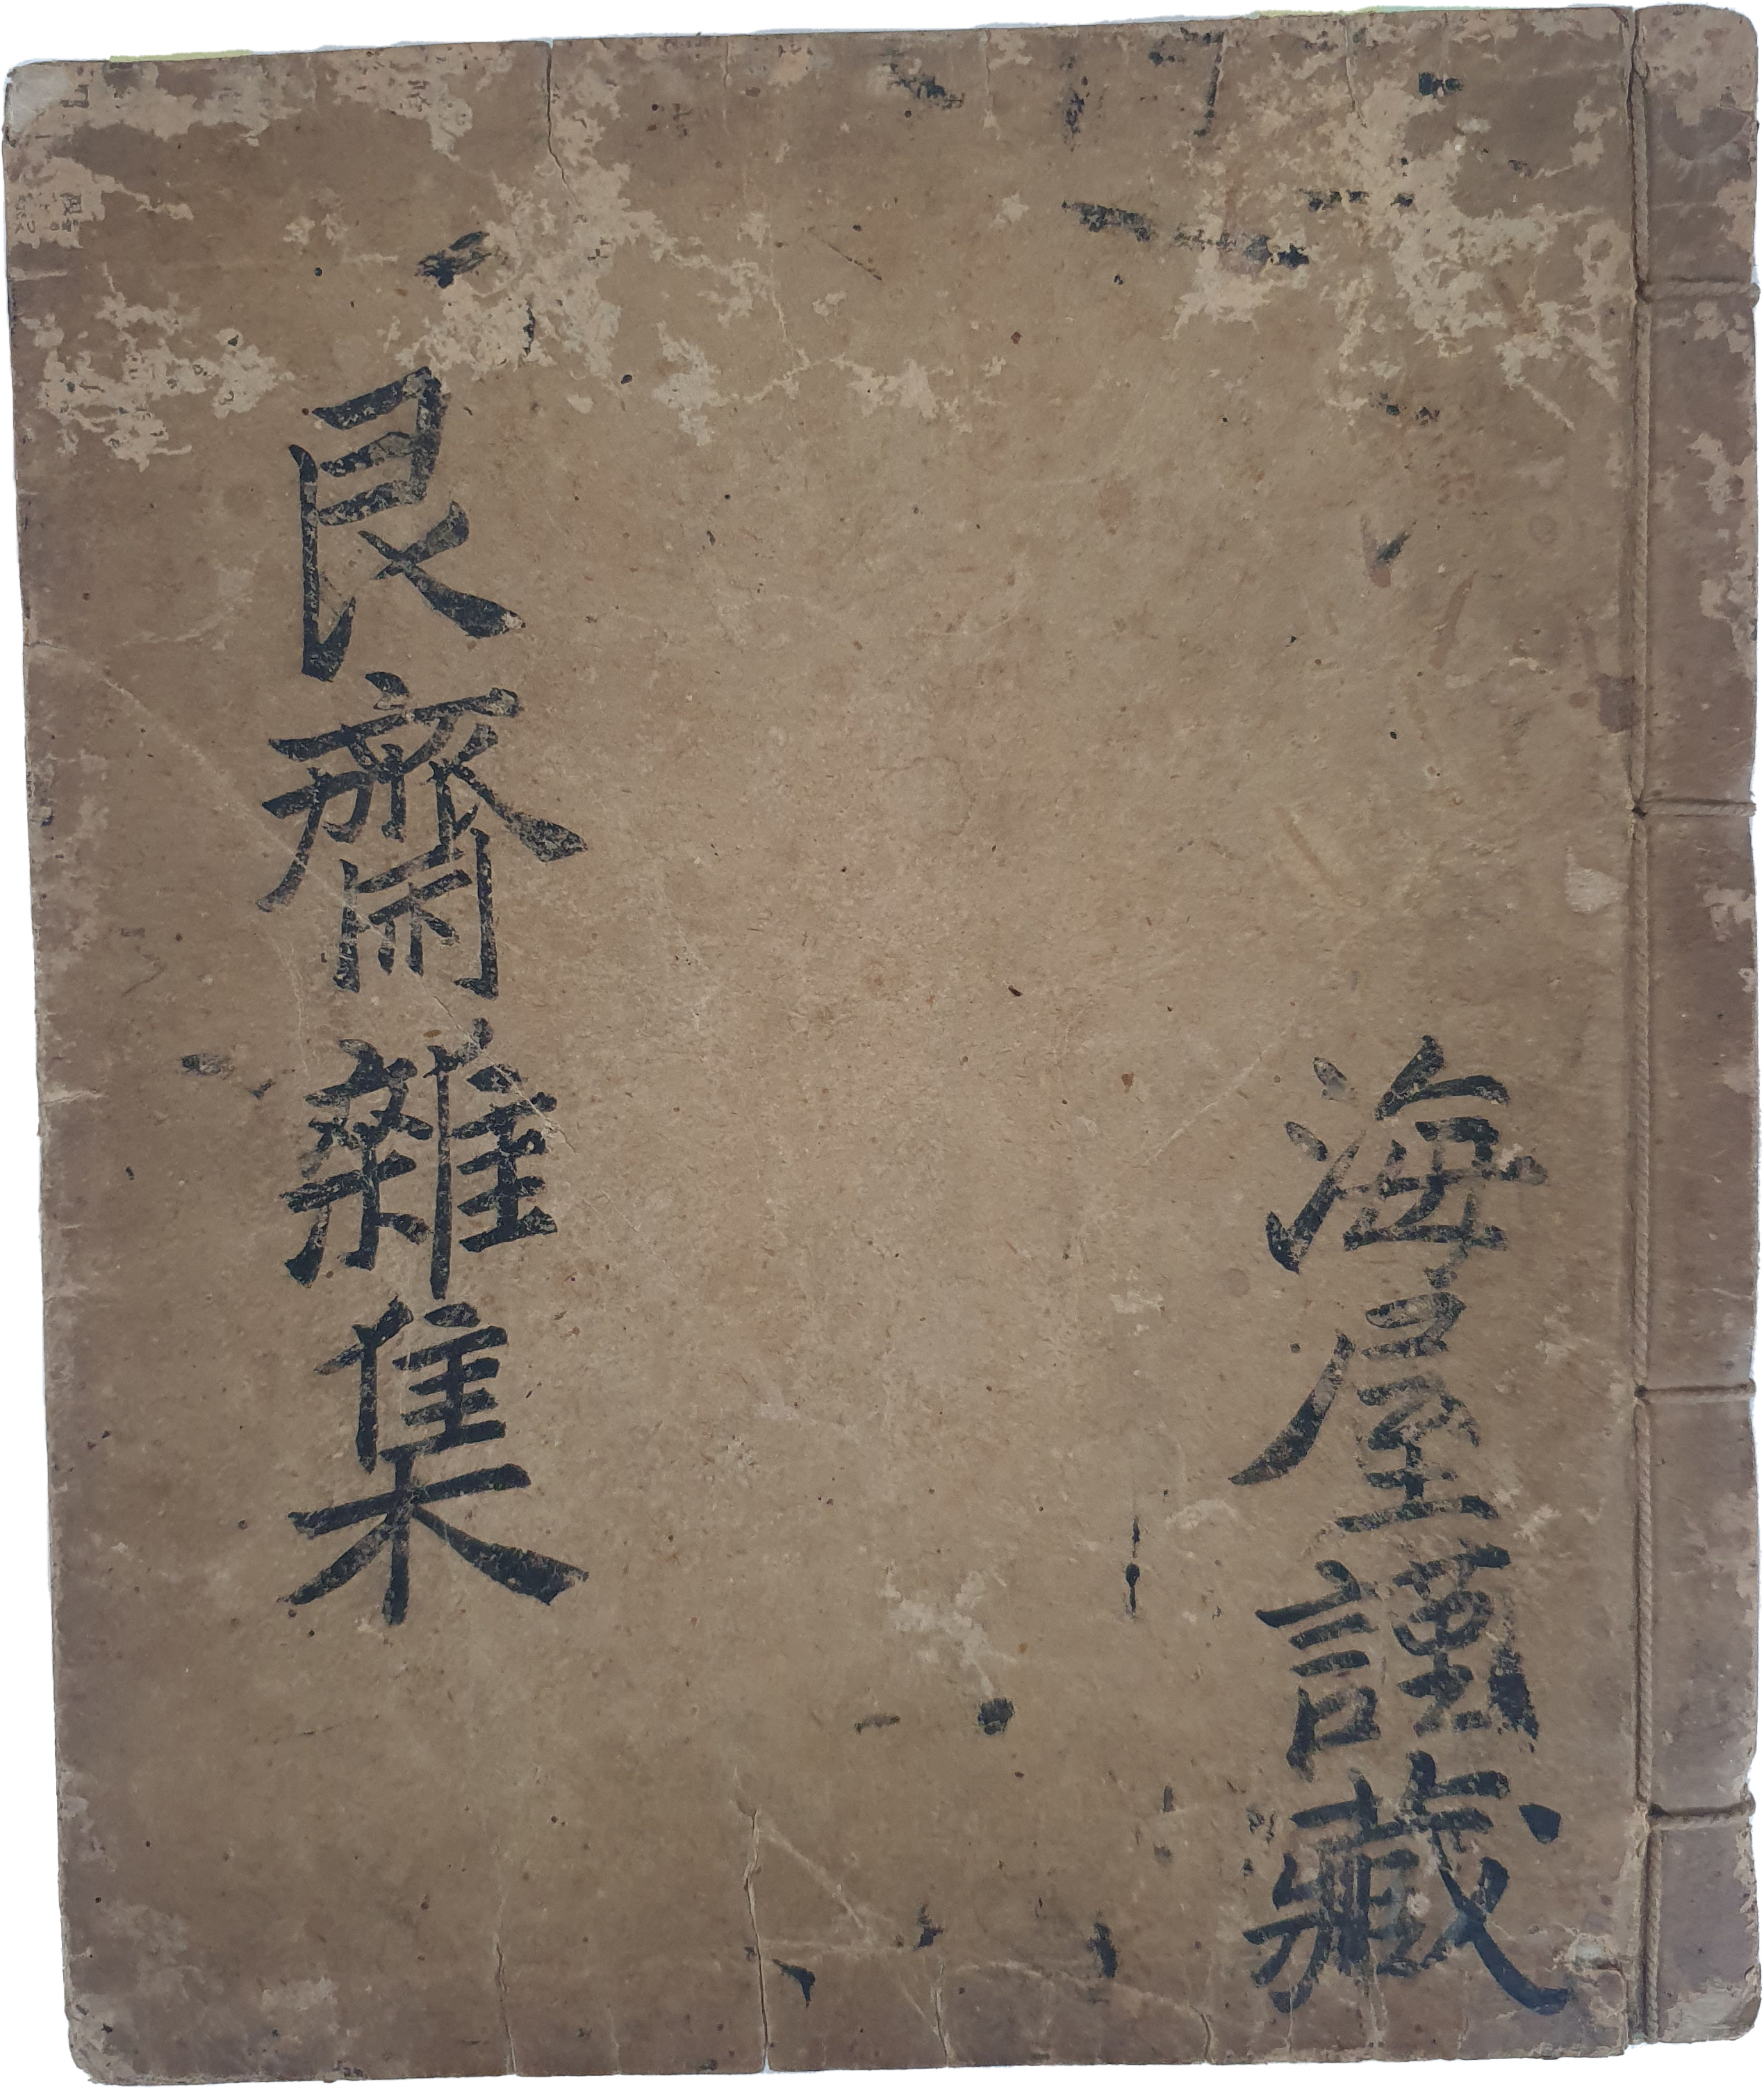 海屋謹藏
艮齋雜集